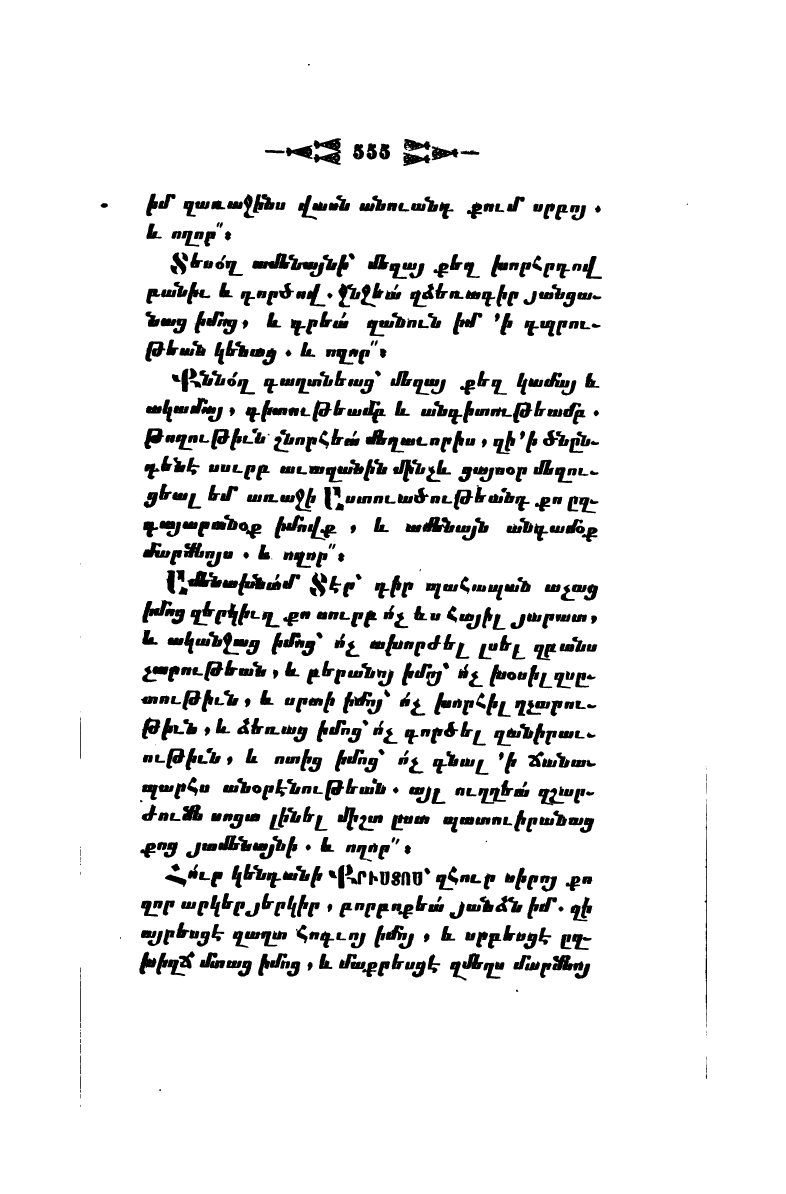 555
իմ զառաջինս վասն անուանդ քում սրբոյ .
և ողոր՟ :
Տեսօղ ամենայնի՝ մեղայ քեզ խորհրդով
բանիւ և գործով . ջնջեա՛ զձեռագիր յանցա-
նաց իմոց, և գրեա՛ զանուն իմ ՚ի դպրու-
թեան կենաց . և ողոր՟ :
Քննօղ գաղտնեաց՝ մեղայ քեզ կամայ և
ակամայ, գիտութեամբ և անգիտութեամբ .
Թողութիւն շնորհեա՛ մեղաւորիս, զի ՚ի ծնըն-
դենէ սուրբ աւազանին մինչև ցայսօր մեղու-
ցեալ եմ առաջի Աստուածութեանդ քո ըզ-
գայարանօք իմովք , և ամենայն անդամօք
մարմնոյս . և ողոր՟ :
Ամենախնամ Տէր՝ դիր պահապան աչաց
իմոց զերկիւղ քո սուրբ ո՛չ ևս հայիլ յարատ,
և ականջաց իմոց՝ ո՛չ ախորժել լսել զբանս
չարութեան, և բերանոյ իմոյ՝ ո՛չ խօսիլ զսը-
տութիւն, և սրտի իմոյ՝ ո՛չ խորհիլ զչարու-
թիւն, և ձեռաց իմոց՝ ո՛չ գործել զանիրաւ-
ութիւն, և ոտից իմոց՝ ո՛չ գնալ ՚ի ճանա-
պարհս անօրէնութեան . այլ ուղղեա՛ զշար-
ժումն սոցա լինել միշտ ըստ պատուիրանաց
քոց յամենայնի . և ողոր՟ :
Հո՛ւր կենդանի ՔՐԻՍՏՈՍ՝ զհուր սիրոյ քո
զոր արկեր յերկիր, բորբոքեա՛ յանձն իմ . զի
այրեսցէ զաղտ հոգւոյ իմոյ , և սրբեսցէ ըզ-
խիղճ մտաց իմոց, և մաքրեսցէ զմեղս մարմնոյ